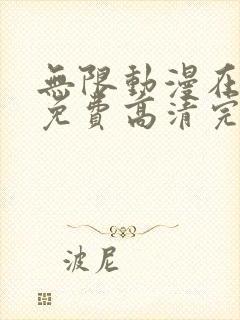 無限動漫在
免費高清完
波尼